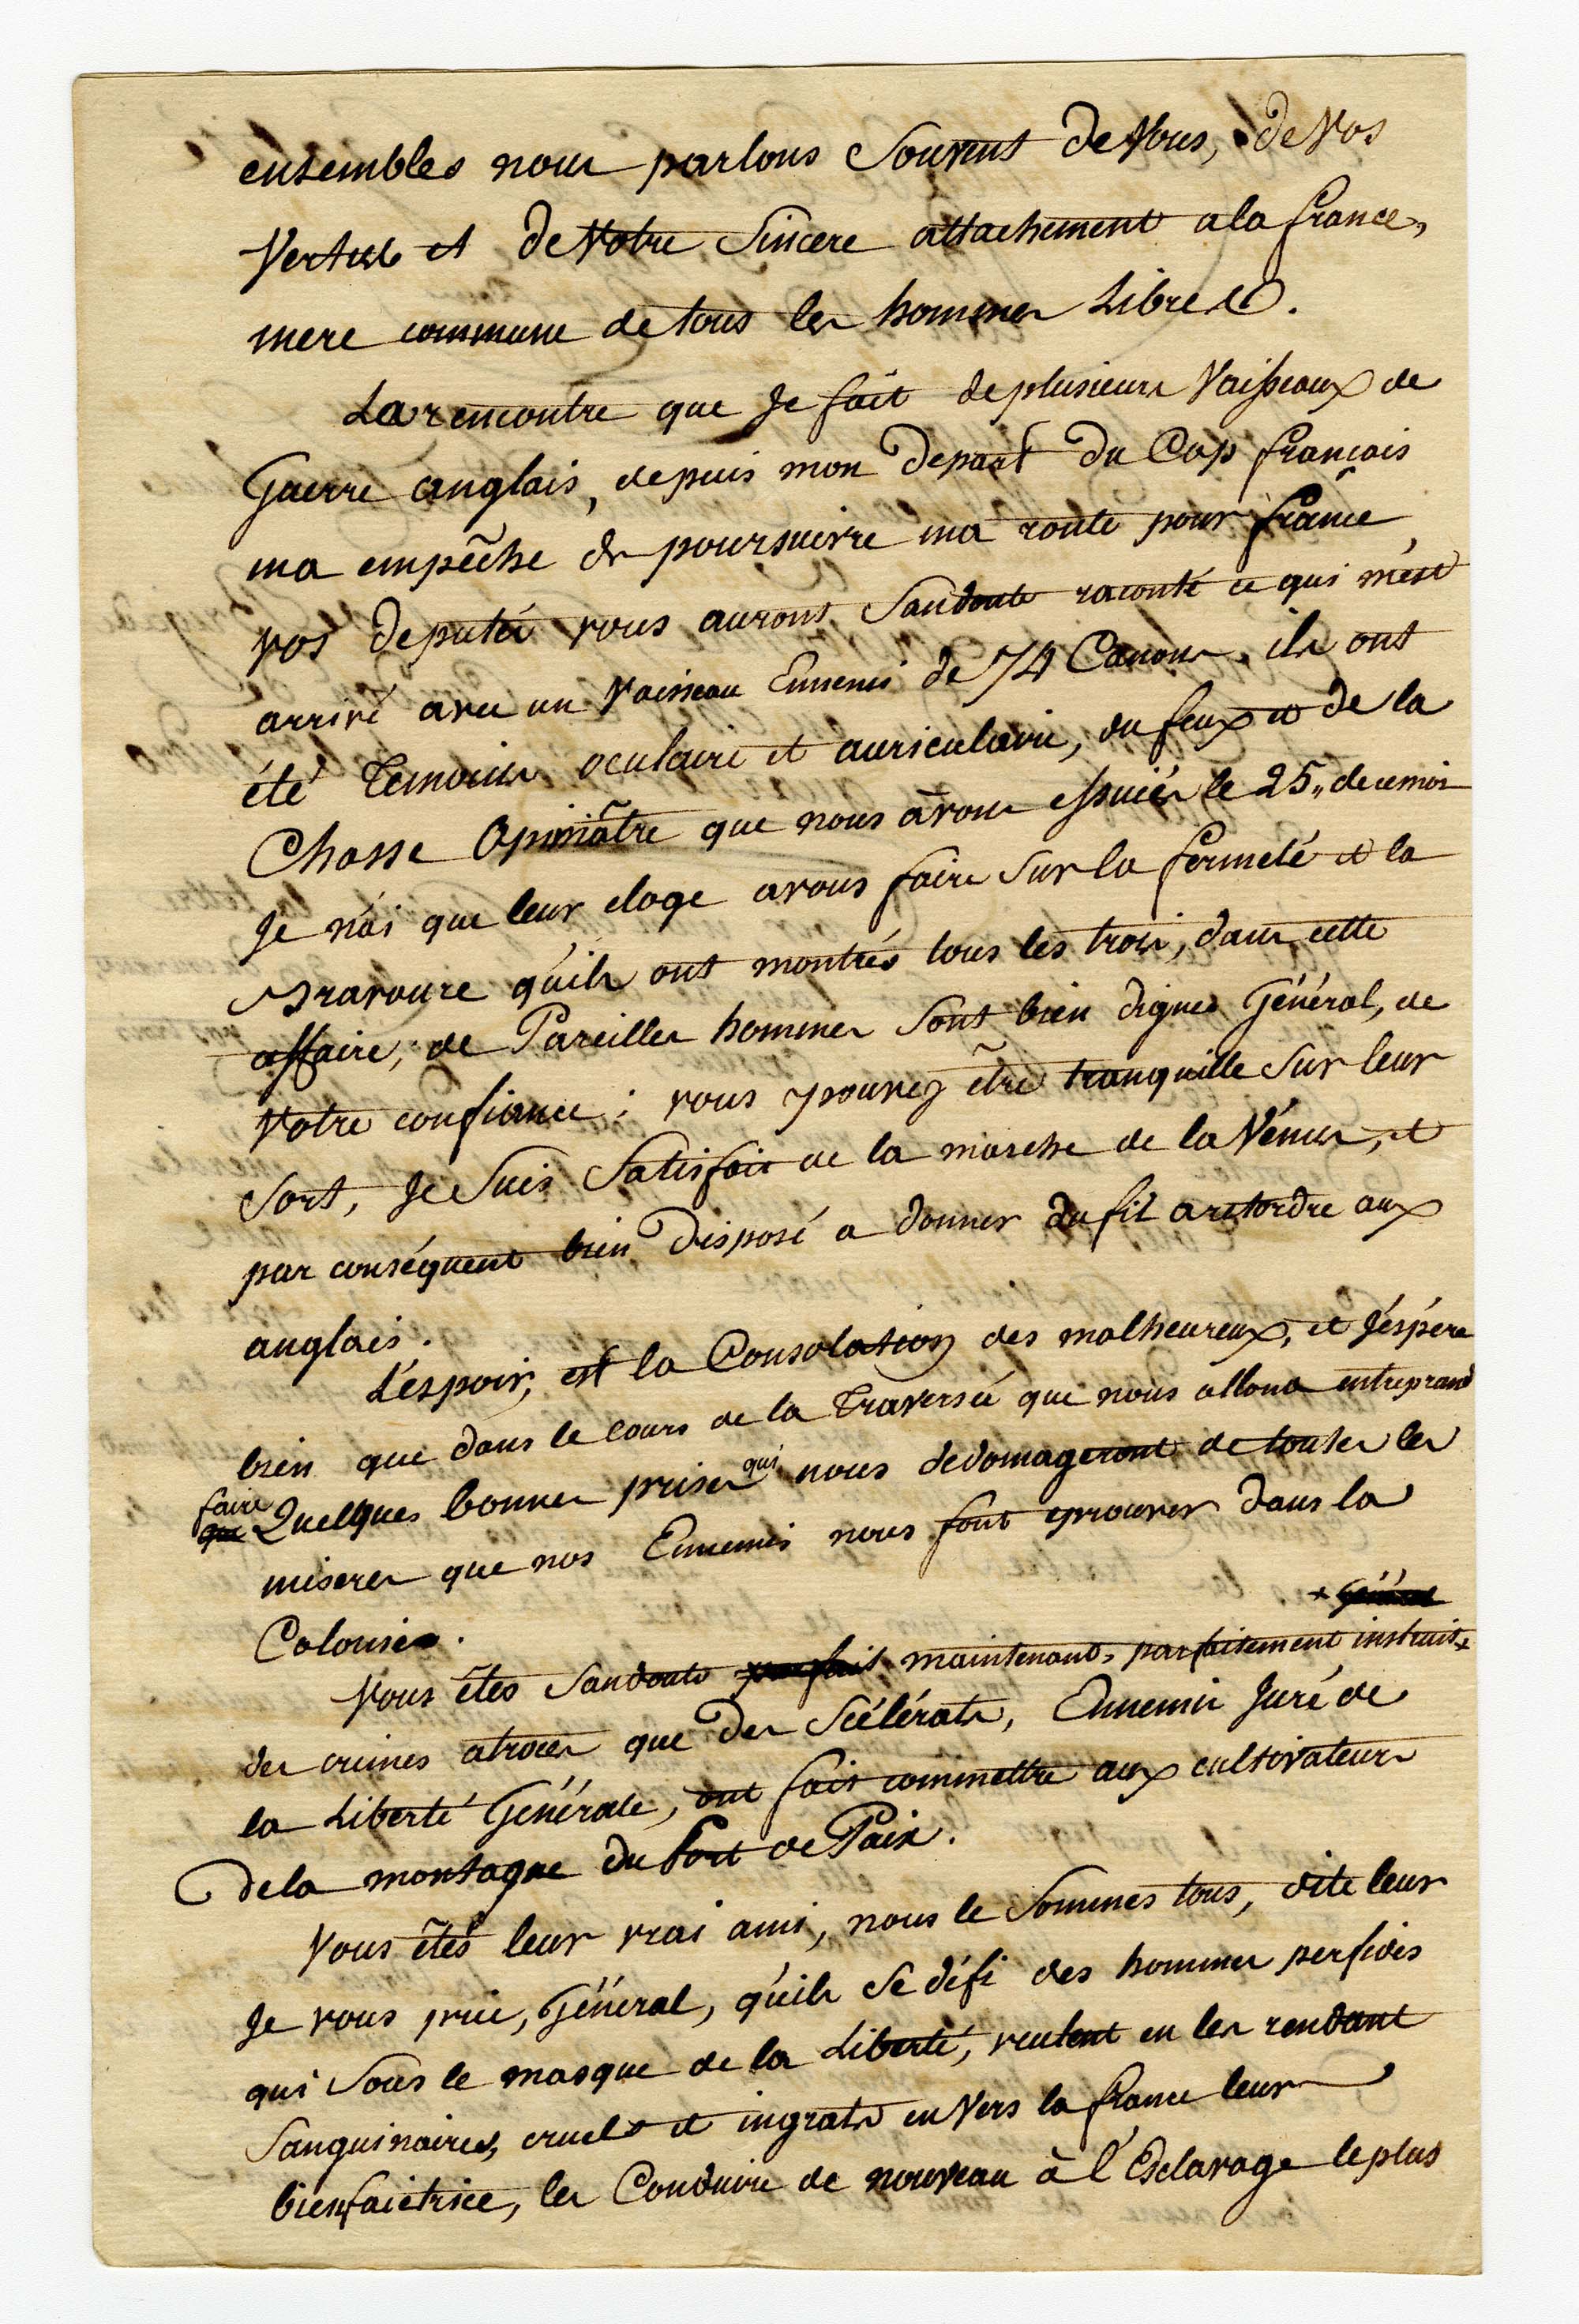 ensembles nous parlons Souvent de Vous, de Vos
Vertus et de Votre Sincere attachement a la france,
mere commune de tous les hommes Libres.
La rencontre que Je fait de plusieurs Vaisseaux de
Guerre anglais, depuis mon Depart Du Cap francais
ma empêche de poursuivre ma route pour france,
vos Deputés vous auront Sandoute raconté ce qui m'est
arrivé avec un Vaisseau Ennemi de 74 Canons, ils ont
été Temoins oculaire et auriculaire, du feux et de la
Chasse Opiniâtre que nous avons essuiés le 25,, de ce mois
Je n'ai que leur eloge a vous faire Sur la fermeté et la
Bravoure qu'ils ont montrés tous les trois, dans cette
affaire; de Pareilles hommes Sont bien dignes Général, de
Votre confiance; vous pouvez être tranquille Sur leur
Sort, Je Suis Satisfait de la marche de la Vénus, et
par conséquent bien Disposé a donner du fil a retordre aux
anglais.
L'espoir, est la Consolation des malheureux, et J'éspére
bien que dans le cours de la Traversée que nous allons entreprand
faire
que Quelques bonnes prises qui nous dedomageront de toutes les
miseres que nos Ennemis nous font eprouver dans la
Colonies.
+ Général
Vous êtes Sandoute parfait maintenant, parfaitement instruit +
des crimes atroces que Des Scélérats, Ennemis Juré de
la Liberté Générale, ont fait commettre aux cultivateurs
De la montagne du Port de Paix.
Vous êtes leur vrai ami, nous le Sommes tous, dite leur
Je vous prie, Général, qu'ils Se défi des hommes perfides
qui Sous le masque de la Liberté, veulent en les rendant
Sanguinaires, cruels et ingrats en Vers la france leur
bienfaictrice, les Conduire de nouveau à l'Esclavage le plus